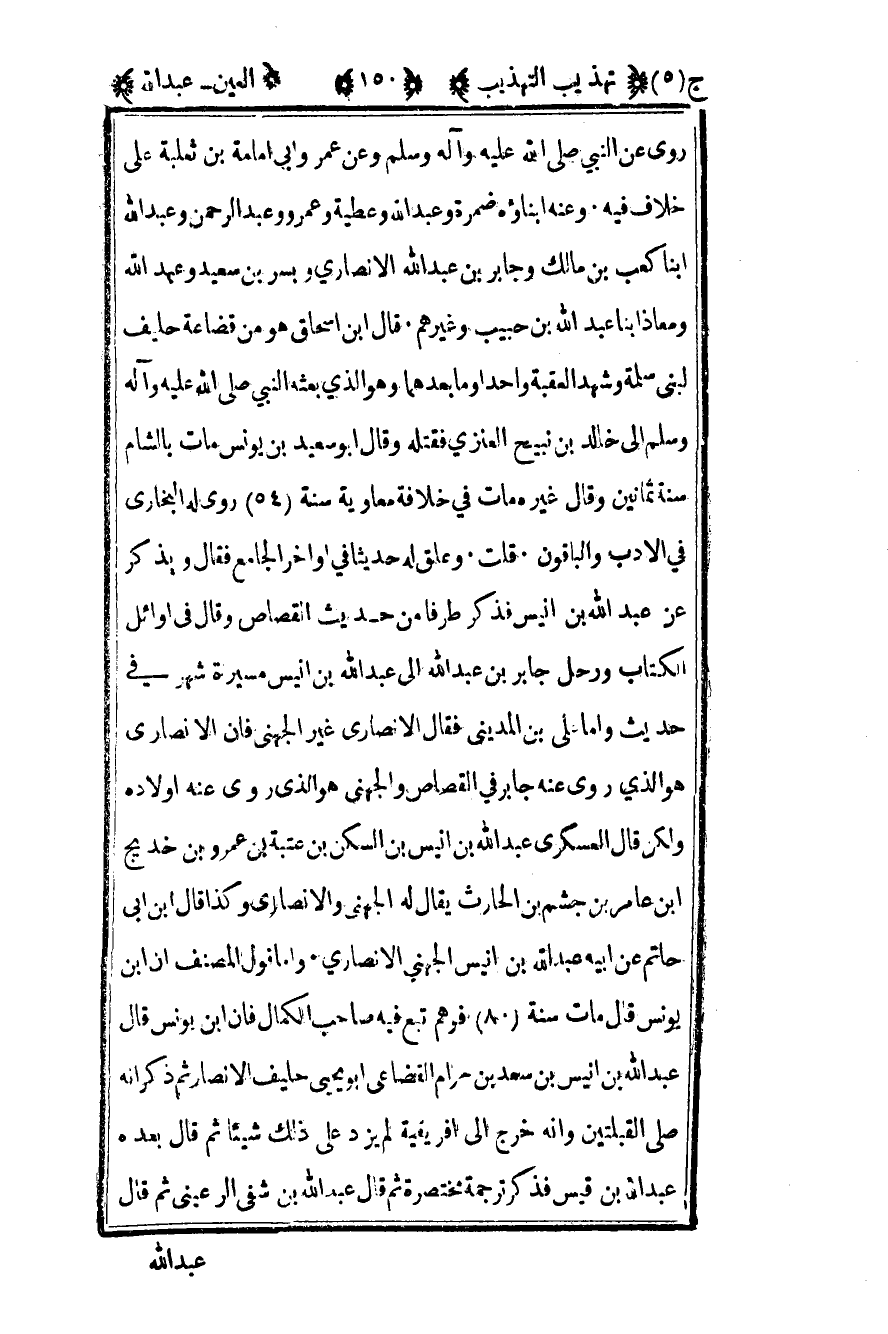 ج(٥) تهذيب التهذيب ١٥٠ العين - عبدالله
روى عن النبي صلى الله عليه وآله وسلم وعن عمر وابي امامة بن ثعلبة على
خلاف فيه · وعنه ابناؤه ضمرة وعبدالله وعطية وعمرو وعبدالرحمن وعبدالله
ابنا كعب بن مالك وجابر بن عبدالله الانصاري وبسر بن سعيد وعبد الله
ومعاذ ابنا عبد الله بن حبيب وغيرهم · قال ابن اسحاق هو من قضاعة حليف
لبنى سلمة وشهد العقبة واحدا وما بعدهما وهو الذي بعثه النبي صلى الله عليه وآله
وسلم الى خالد بن نبيح العنزي فقتله وقال ابو سعيد بن يونس مات بالشام
سنة ثمانين وقال غيره مات في خلافة معاوية سنة (٥٤) روى له البخارى
في الادب والباقون · قلت · وعلق له حديثا في اواخر الجامع فقال ويذكر
عن عبد الله بن انيس فذكر طرفا من حديث القصاص وقال فى اوائل
الكتاب ورحل جابر بن عبدالله الى عبدالله بن انيس مسيرة شهر في
حديث واما على بن المدينى فقال الانصارى غير الجهنى فان الانصارى
هو الذي روى عنه جابر في القصاص والجهنى هو الذى روى عنه اولاده
ولكن قال العسكرى عبدالله بن انيس بن السكن بن عتبة بن عمرو بن خديج
ابن عامر بن جشم بن الحارث يقال له الجهنى والانصارى وكذا قال ابن ابى
حاتم عن ابيه عبدالله بن انيس الجهني الانصاري · واما قول المصنف ان ابن
يونس قال مات سنة (٨٠) فوهم تبع فيه صاحب الكمال فان ابن يونس قال
عبدالله بن انيس بن سعد بن حرام القضاعى ابو يحيى حليف الانصار ثم ذكر انه
صلى القبلتين وانه خرج الى افريقية لم يزد على ذلك شيئا ثم قال بعده
عبدالله بن قيس فذكر ترجمة مختصرة ثم قال عبدالله بن شفى الرعينى ثم قال
عبدالله